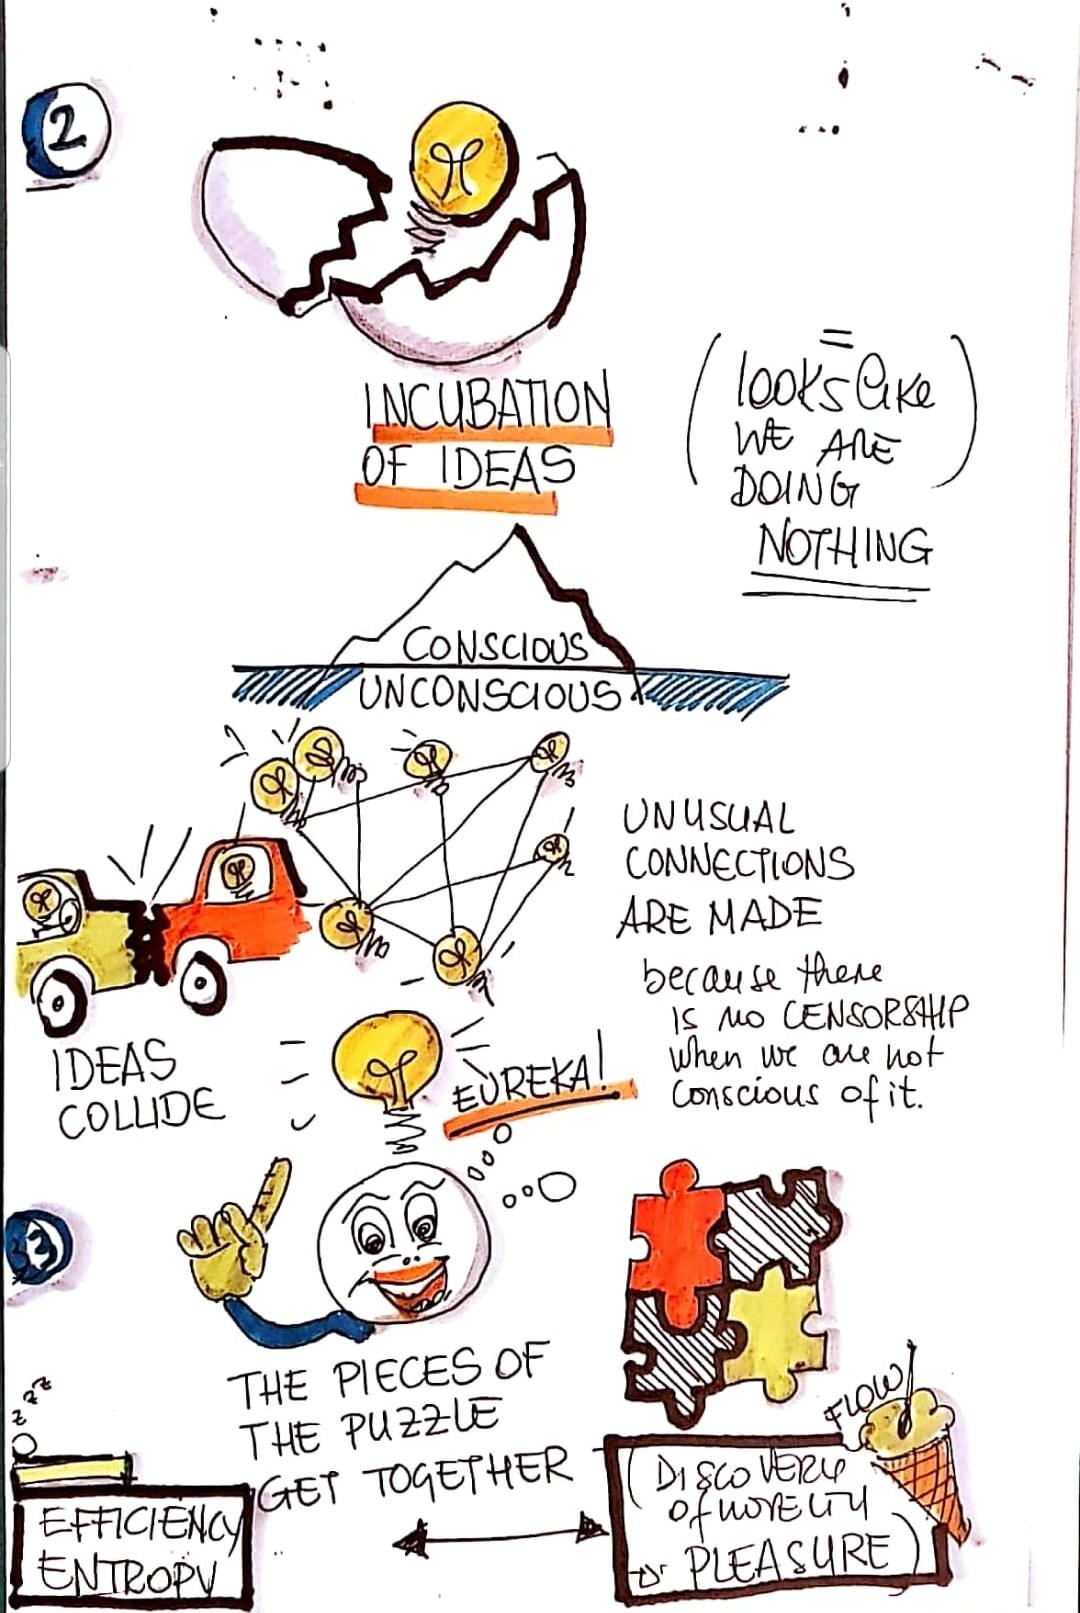 2
INCUBATION
OF IDEAS
( =
looks like
WE ARE
DOING
NOTHING )
CONSCIOUS
UNCONSCIOUS
UNUSUAL
CONNECTIONS
ARE MADE
because there
IS NO CENSORSHIP
when we are not
conscious of it.
IDEAS
COLLIDE
EUREKA!
3
THE PIECES OF
THE PUZZLE
GET TOGETHER
z z z z
EFFICIENCY
ENTROPY
FLOW
(DISCOVERY
of NOVELTY
PLEASURE)